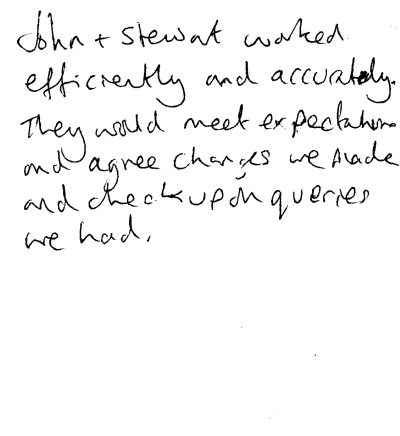 John + Stewart worked
efficiently and accurately.
They would meet expectations
and agree changes we made
and check upon queries
we had.